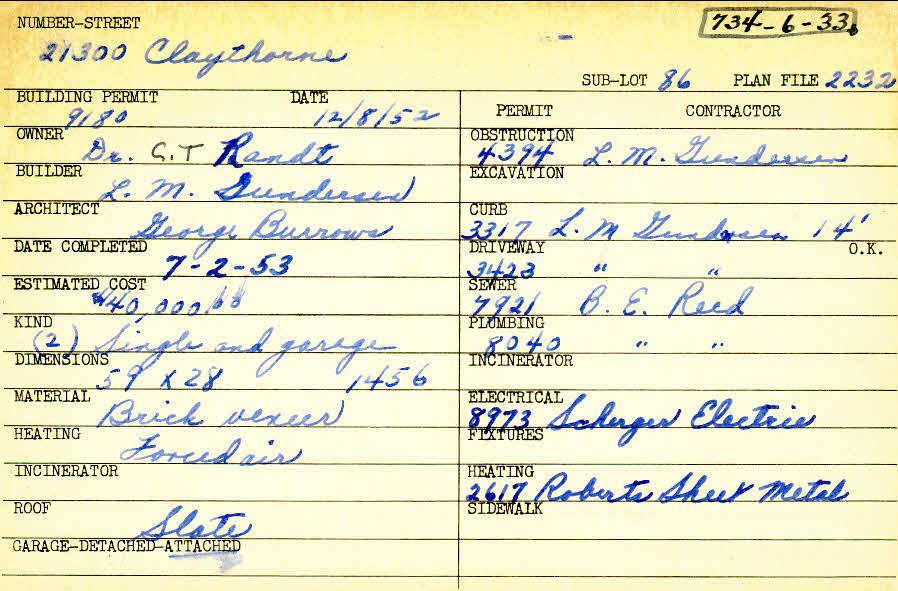 NUMBER-STREET
734-6-33
21300 Claythorne
SUB-LOT 86 PLAN FILE 2232
BUILDING PERMIT DATE
9180 12/8/52
OWNER
Dr. C.T Randt
BUILDER
L. M. Gundersen
ARCHITECT
George Burrows
DATE COMPLETED
7-2-53
ESTIMATED COST
$40,000
KIND
(2) Single and garage
DIMENSIONS
59 x 28 1456
MATERIAL
Brick veneer
HEATING
Forced air
INCINERATOR
ROOF
Slate
GARAGE-DETACHED-ATTACHED
PERMIT CONTRACTOR
OBSTRUCTION
4394 L. M. Gundersen
EXCAVATION
CURB
3317 L. M Gundersen 14'
DRIVEWAY O.K.
3423 " "
SEWER
7921 B. E. Reed
PLUMBING
8040 " "
INCINERATOR
ELECTRICAL
8973 Scherger Electric
FIXTURES
HEATING
2617 Roberts Sheet Metal
SIDEWALK